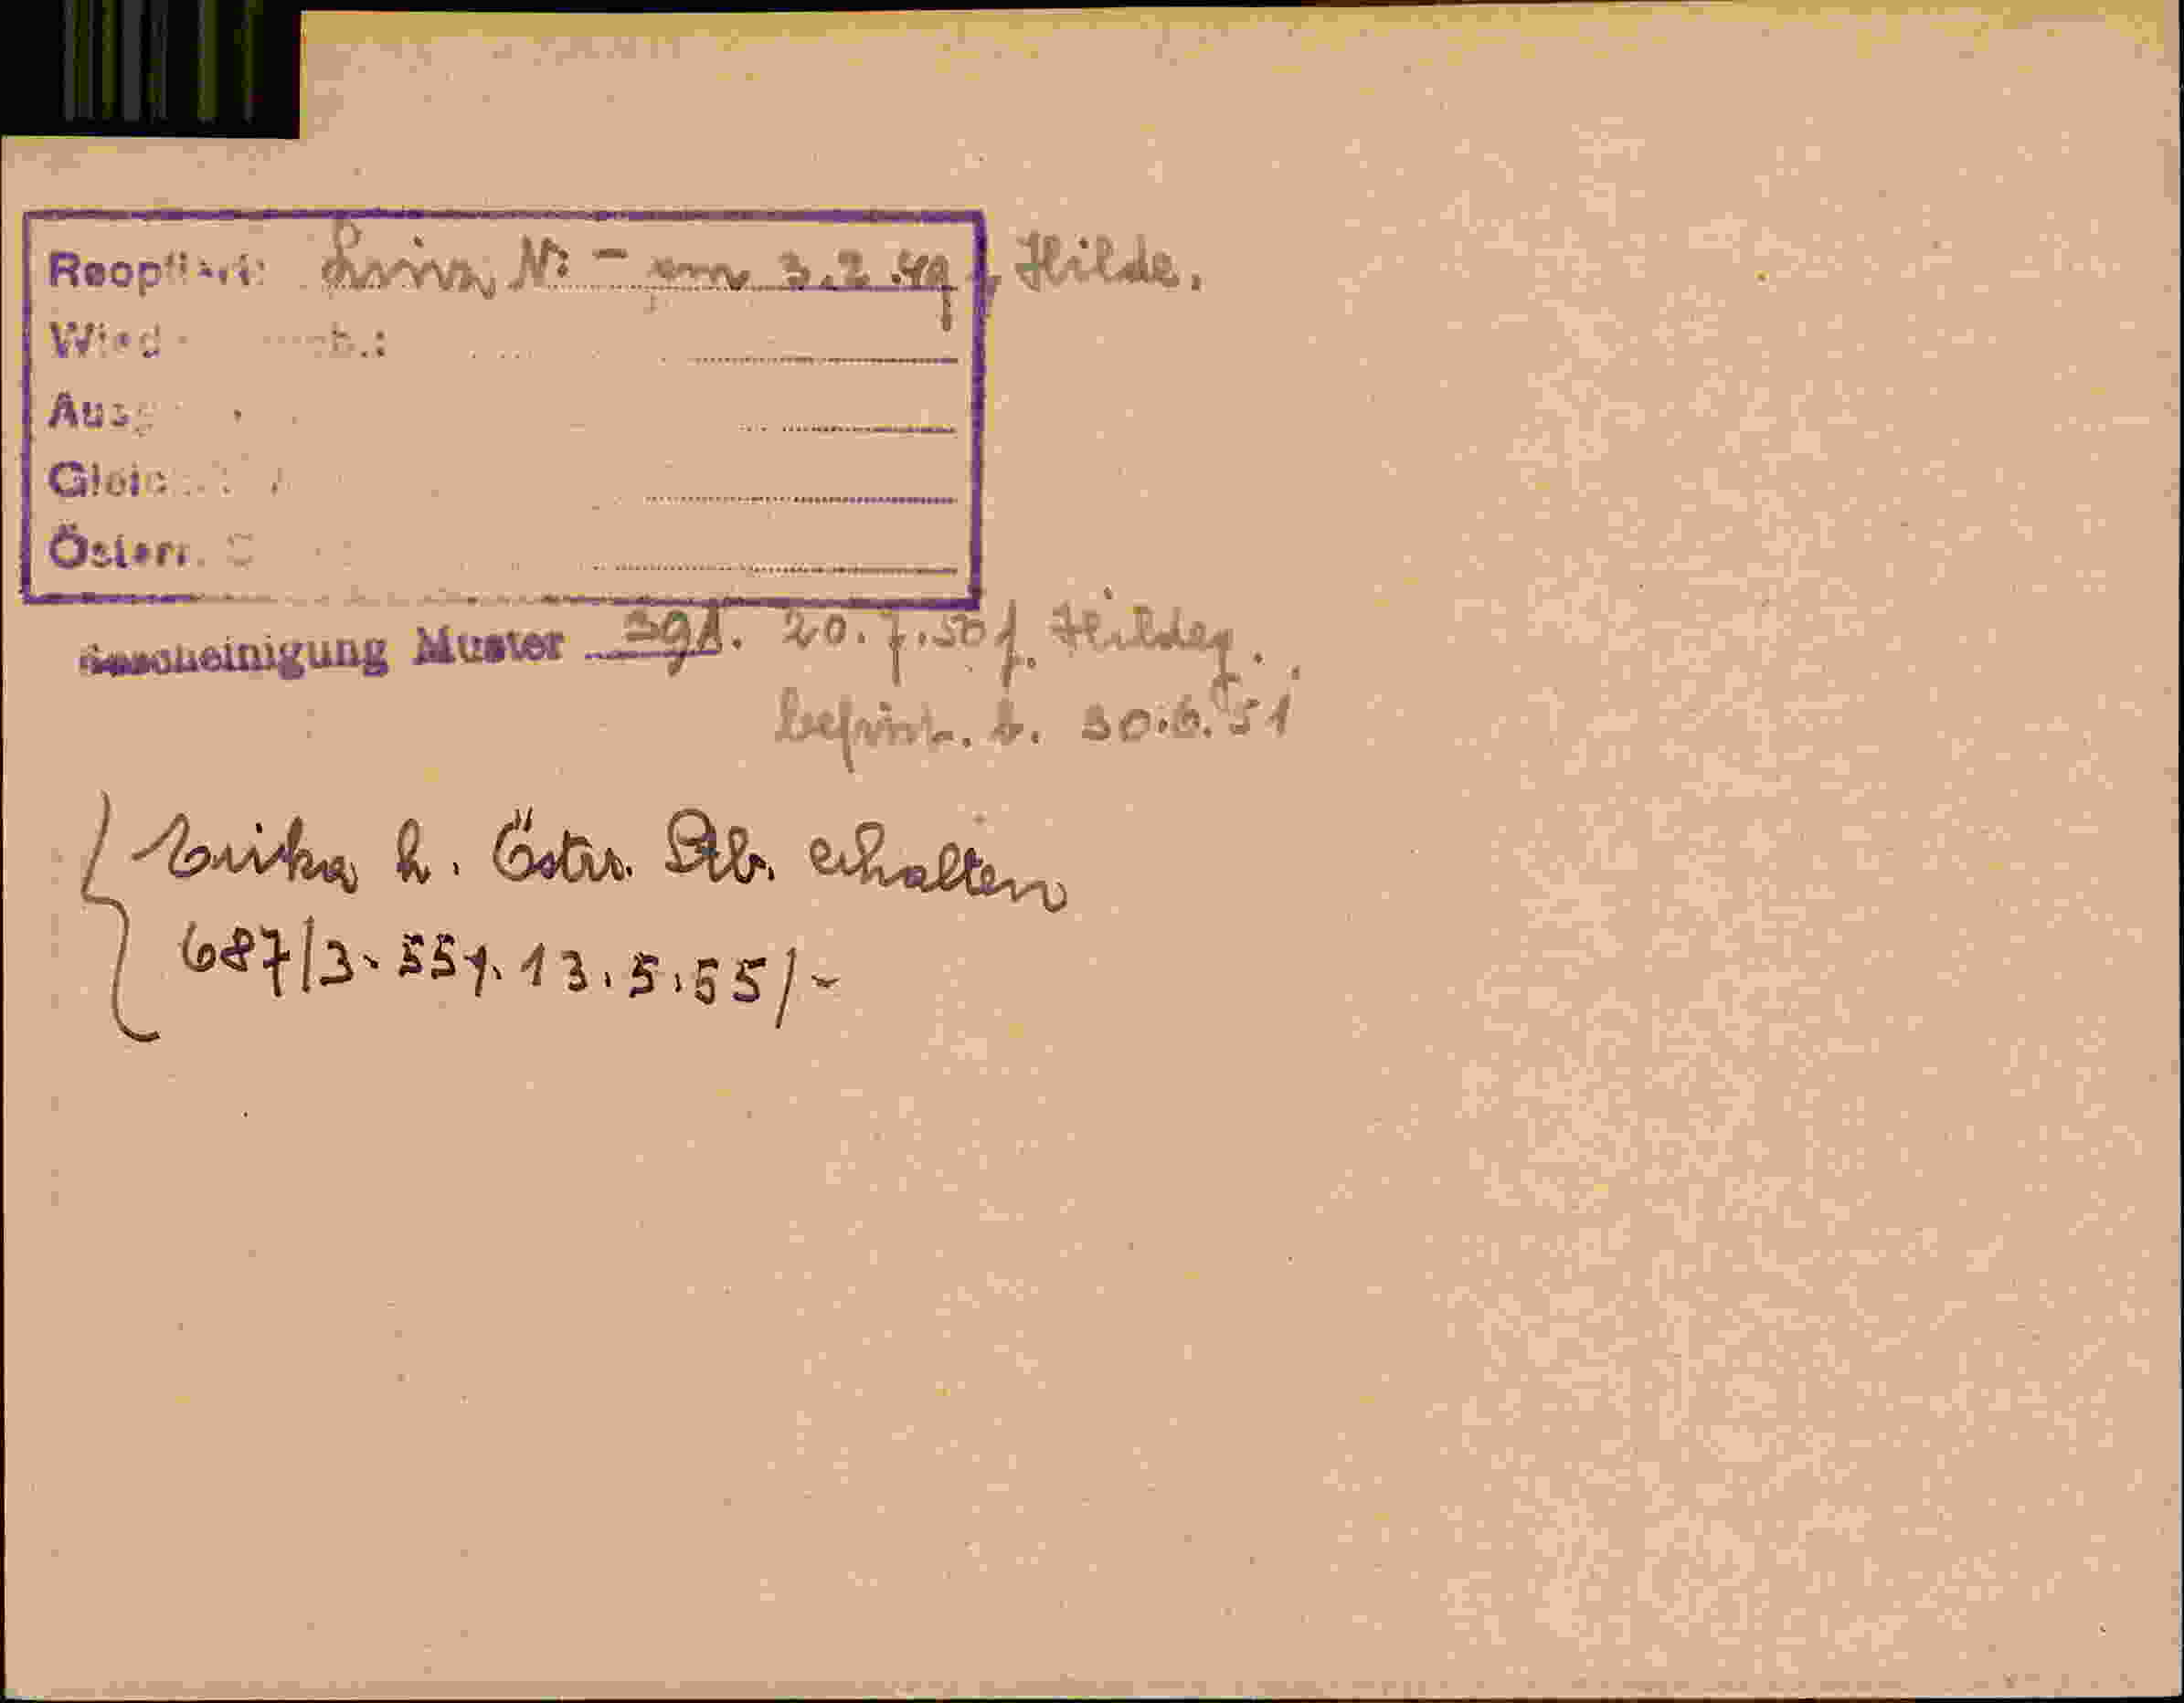 Reoptiert: Linz, Nr - am 3.2.49 f. Hilde.
Wied
Ausg
Gleich
Österr. S
Bescheinigung Muster 391. 20.7.50 f. Hildeg.
befrist. b. 30.6.51
Erika h. Östr. Stb. erhalten
687/3-55 f. 13.5.55/-